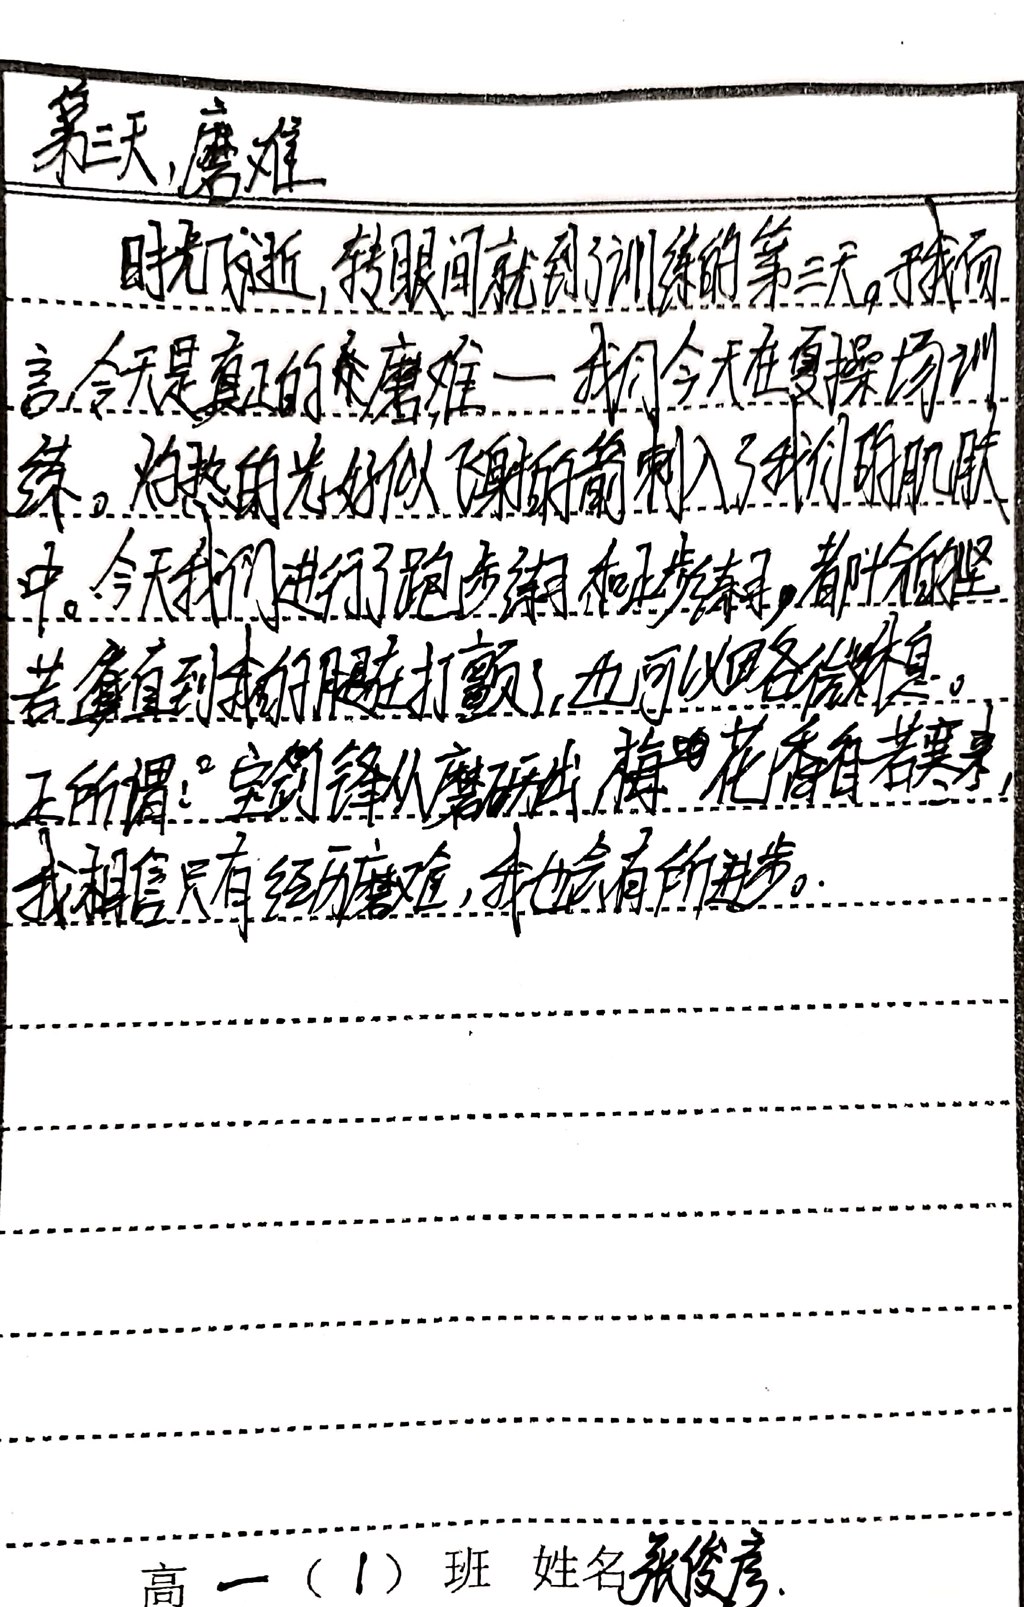 第三天，磨难
时光飞逝，转眼间就到了训练的第三天。于我而
言，今天是真正的磨难一我们今天在夏操场训
练。灼热的光好似飞射的箭刺入了我们的肌肤
中。今天我们进行了跑步练习和正步练习，都十分的坚
苦，直到我的腿在打颤了，也可以略微休息。
正所谓：“宝剑锋从磨砺出，梅花香自苦寒来，
我相信只有经历磨难，我也会有所进步。
高一（1）班 姓名张俊彦.